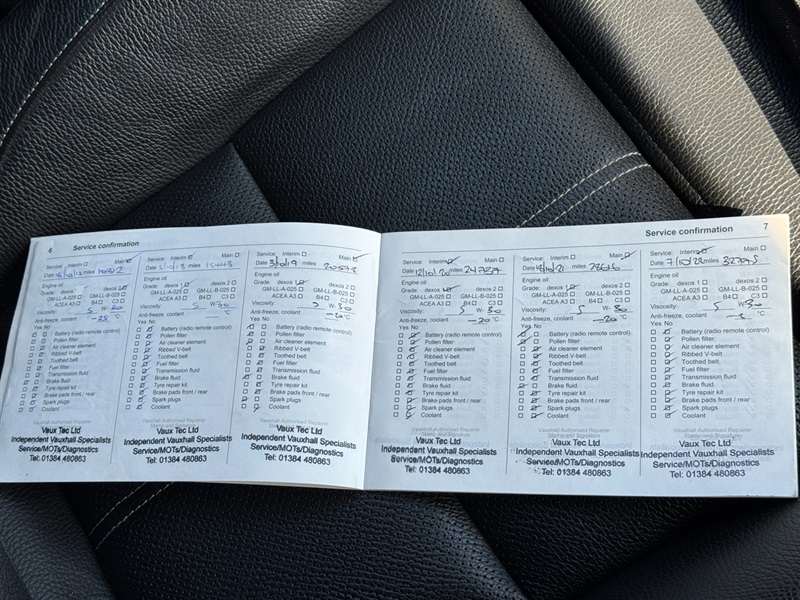 6 Service confirmation
Service: Interim Main
Date miles
Engine oil
Grade: dexos 1 dexos 2
GM-LL-A-025 GM-LL-B-025
ACEA A3 B4 C3
Viscosity: 5 W- 30
Anti-freeze, coolant -25 °C
Yes No
Battery (radio remote control)
Pollen filter
Air cleaner element
Ribbed V-belt
Toothed belt
Fuel filter
Transmission fluid
Brake fluid
Tyre repair kit
Brake pads front / rear
Spark plugs
Coolant
Vauxhall Authorised Repairer
Vaux Tec Ltd
Independent Vauxhall Specialists
Service/MOTs/Diagnostics
Tel: 01384 480863
Service: Interim Main
Date miles 15443
Engine oil
Grade: dexos 1 dexos 2
GM-LL-A-025 GM-LL-B-025
ACEA A3 B4 C3
Viscosity: 5 W- 30
Anti-freeze, coolant °C
Yes No
Battery (radio remote control)
Pollen filter
Air cleaner element
Ribbed V-belt
Toothed belt
Fuel filter
Transmission fluid
Brake fluid
Tyre repair kit
Brake pads front / rear
Spark plugs
Coolant
Vauxhall Authorised Repairer
Vaux Tec Ltd
Independent Vauxhall Specialists
Service/MOTs/Diagnostics
Tel: 01384 480863
Service: Interim Main
Date 3/10/19 miles
Engine oil
Grade: dexos 1 dexos 2
GM-LL-A-025 GM-LL-B-025
ACEA A3 B4 C3
Viscosity: 5 W- 30
Anti-freeze, coolant °C
Yes No
Battery (radio remote control)
Pollen filter
Air cleaner element
Ribbed V-belt
Toothed belt
Fuel filter
Transmission fluid
Brake fluid
Tyre repair kit
Brake pads front / rear
Spark plugs
Coolant
Vauxhall Authorised Repairer
Vaux Tec Ltd
Independent Vauxhall Specialists
Service/MOTs/Diagnostics
Tel: 01384 480863
Service confirmation 7
Service: Interim Main
Date 12/10/20 miles
Engine oil
Grade: dexos 1 dexos 2
GM-LL-A-025 GM-LL-B-025
ACEA A3 B4 C3
Viscosity: 5 W- 30
Anti-freeze, coolant -20 °C
Yes No
Battery (radio remote control)
Pollen filter
Air cleaner element
Ribbed V-belt
Toothed belt
Fuel filter
Transmission fluid
Brake fluid
Tyre repair kit
Brake pads front / rear
Spark plugs
Coolant
Vauxhall Authorised Repairer
Stamp and Signature
Vaux Tec Ltd
Independent Vauxhall Specialists
Service/MOTs/Diagnostics
Tel: 01384 480863
Service: Interim Main
Date miles
Engine oil
Grade: dexos 1 dexos 2
GM-LL-A-025 GM-LL-B-025
ACEA A3 B4 C3
Viscosity: 5 W- 30
Anti-freeze, coolant -20 °C
Yes No
Battery (radio remote control)
Pollen filter
Air cleaner element
Ribbed V-belt
Toothed belt
Fuel filter
Transmission fluid
Brake fluid
Tyre repair kit
Brake pads front / rear
Spark plugs
Coolant
Vauxhall Authorised Repairer
Stamp and Signature
Vaux Tec Ltd
Independent Vauxhall Specialists
Service/MOTs/Diagnostics
Tel: 01384 480863
Service: Interim Main
Date miles
Engine oil
Grade: dexos 1 dexos 2
GM-LL-A-025 GM-LL-B-025
ACEA A3 B4 C3
Viscosity: 5 W- 30
Anti-freeze, coolant °C
Yes No
Battery (radio remote control)
Pollen filter
Air cleaner element
Ribbed V-belt
Toothed belt
Fuel filter
Transmission fluid
Brake fluid
Tyre repair kit
Brake pads front / rear
Spark plugs
Coolant
Vauxhall Authorised Repairer
Stamp and Signature
Vaux Tec Ltd
Independent Vauxhall Specialists
Service/MOTs/Diagnostics
Tel: 01384 480863